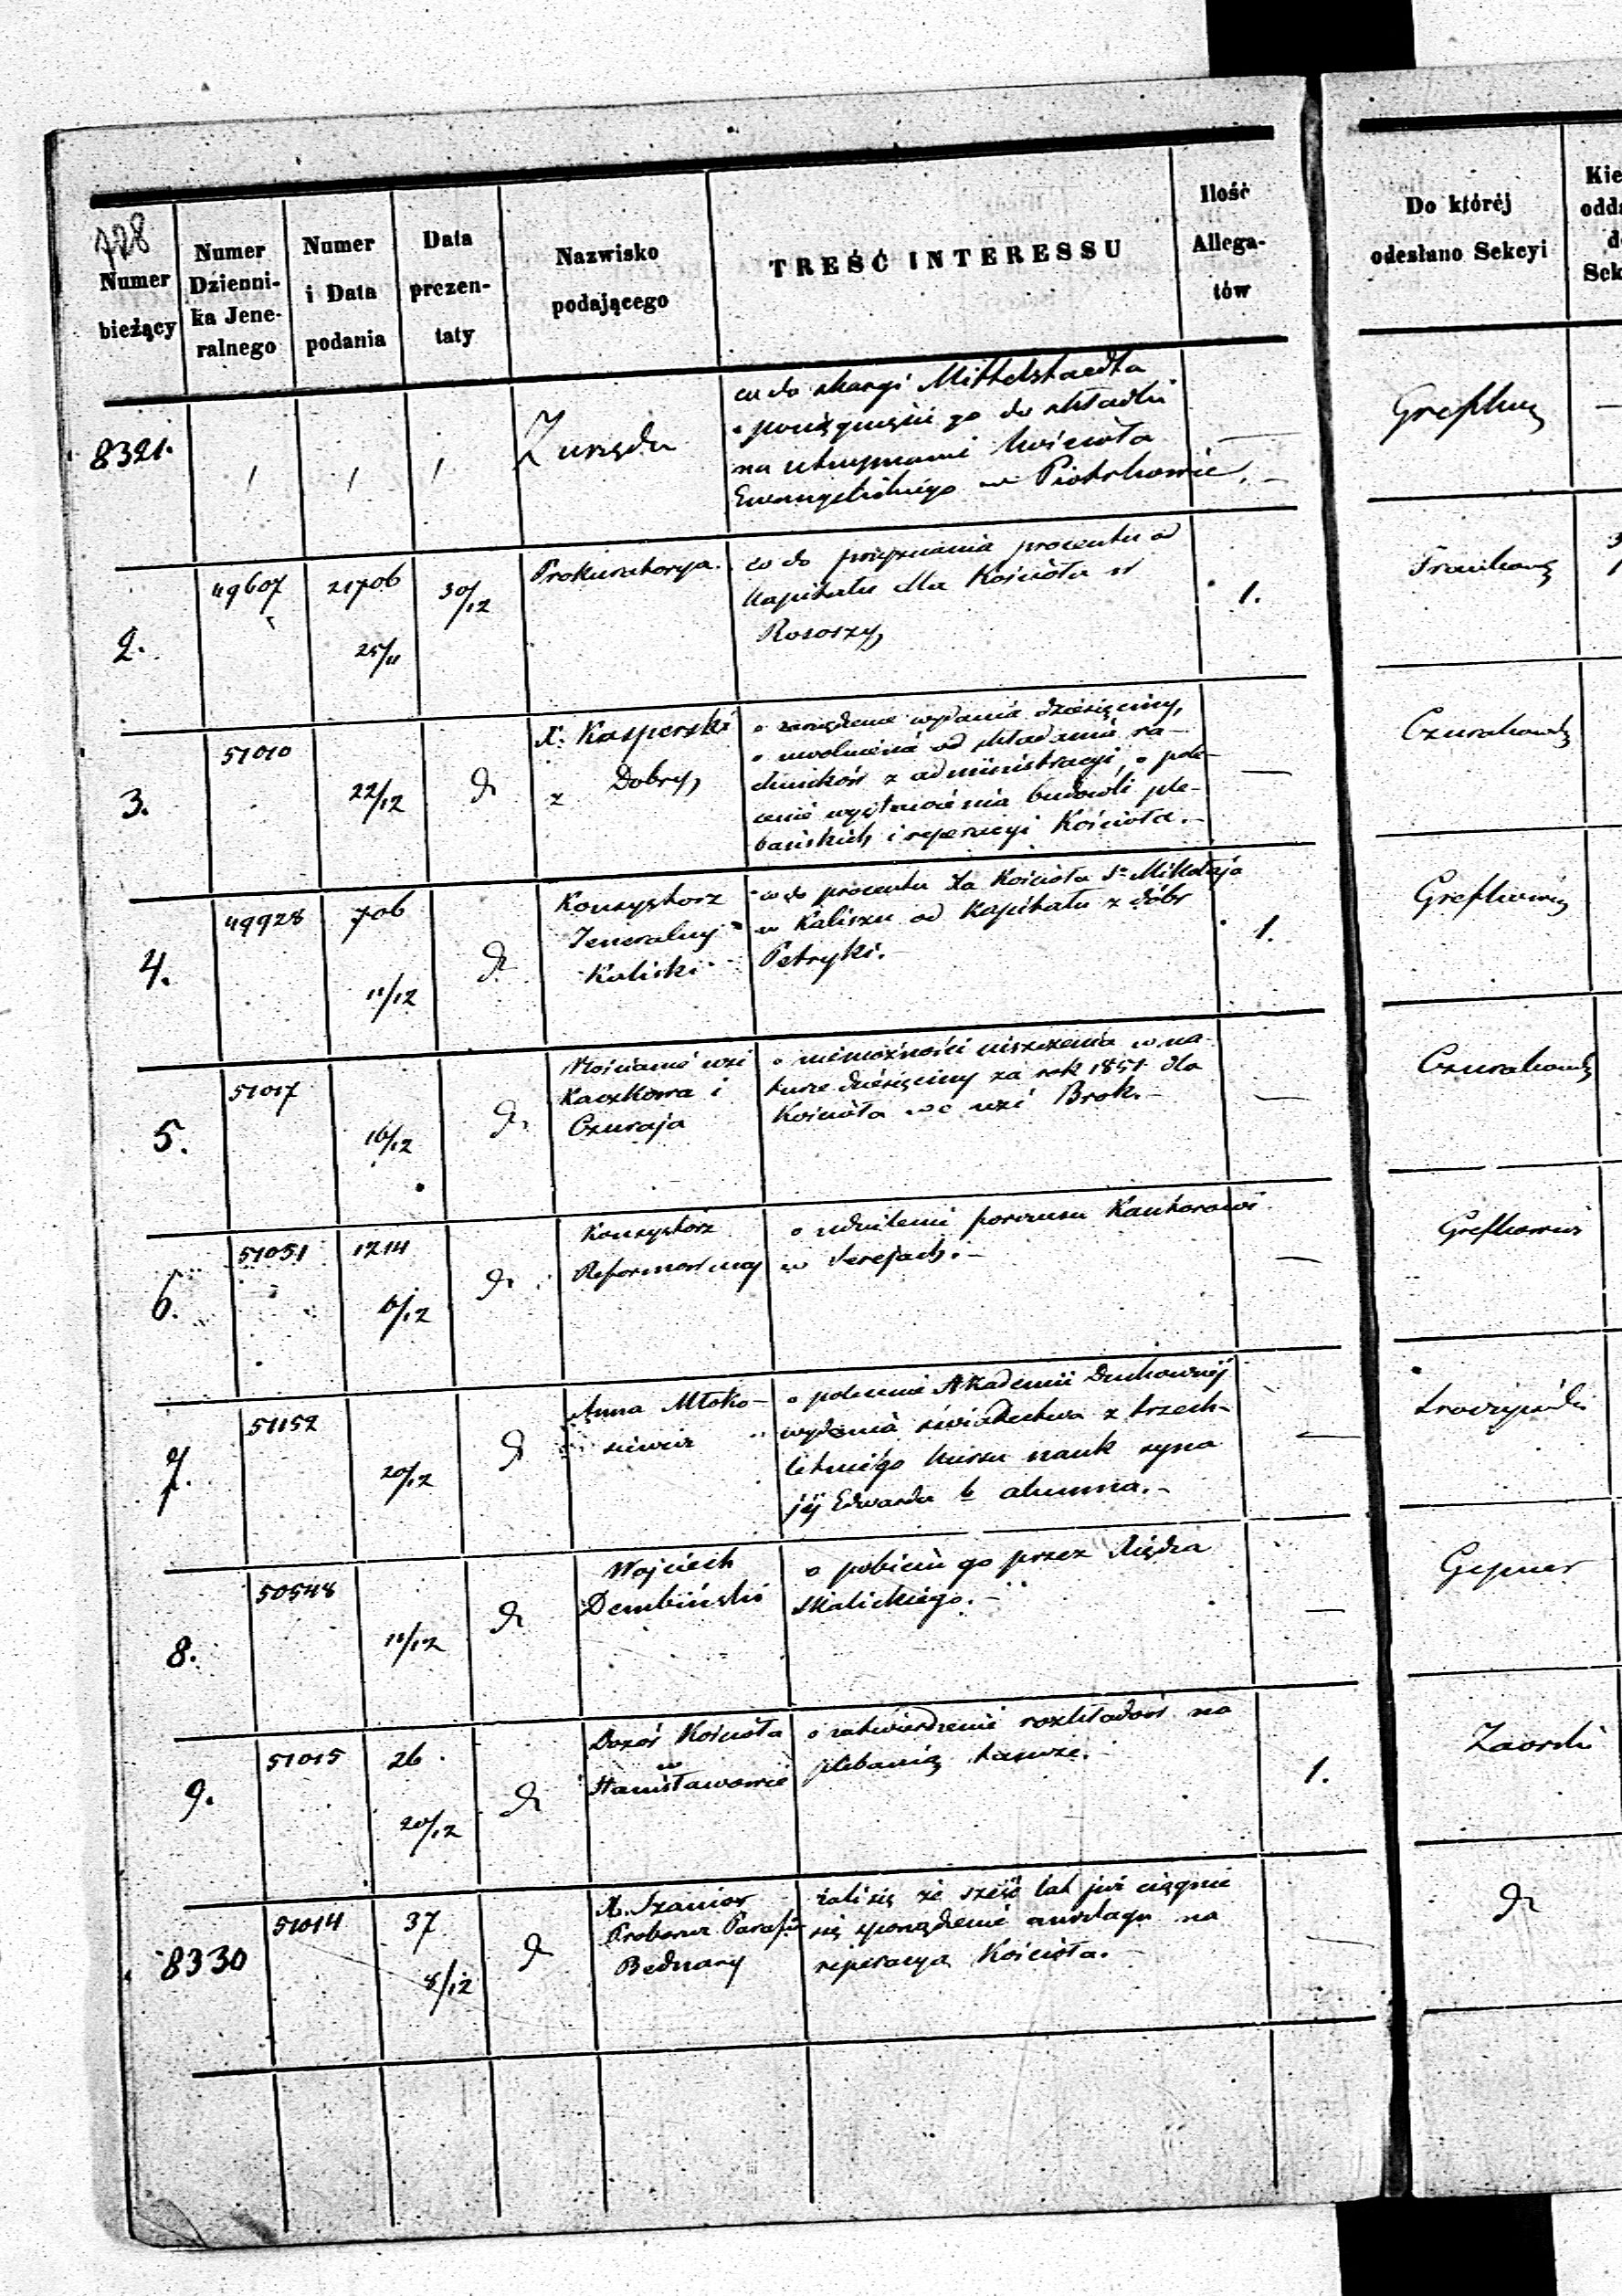 728
Numer bieżący
Numer Dzienni- ka Jene- ralnego
Numer i Data podania
Data prezen- taty
Nazwisko podającego
TREŚĆ INTERESSU
Ilość Allega- tów
Do któréj odesłano Sekcyi
Kie
odda
d
Sek
8321.
Z urzędu
co do skargi Mittelstaedta
o pociągnięcie go do składki
na utrzymanie Kościoła
Ewangelickiego w Piotrkowie.
2.
49607
21706
25/11
30/12
Prokuratorya.
co do przyznania procentu od
Kapitału dla Kościoła w
Rososzy,
1.
3.
51010
22/12
X. Kasperski
z Dobry,
o zarządzenie wydania dziesięciny,
o uwolnienie od składania ra-
chunków z administracyi, o pole-
cenie wystawienia budowli ple-
bańskich i reperacyi Kościoła.-
4.
49928
706
11/12
Konsystorz
Jeneralny
Kaliski
co do procentu dla Kościoła Sgo Mikołaja
w Kaliszu od Kapitału z dóbr
Petryki.-
1.
5.
51017
16/12
Włościanie wsi
Kaczkowa i
Czuraja
o niemożności uiszczenia w na-
turze dziesięciny za rok 1851 dla
Kościoła we wsi Brok.-
6.
51051
1214
6/12
Konsystorz
Reformowany
o udzielenie Kantorowi
w Serejach.-
7.
51152
20/12
Anna Młoko-
siewicz
o polecenie Akademii Duchownéj
wydania świadectwa z trzech-
letniego kursu nauk syna
jéj Edwarda b. alumna.-
8.
50548
11/12
Wojciech
Dembiński
o pobicie go przez Księdza
Skalickiego.-
Gepner
9.
51015
26
20/12
Dozór Kościoła
w
Stanisławowie
o zatwierdzenie rozkładów na
plebanią tamże.-
1.
Zaorski
8330
51014
37
8/12
X. Szanior
Proboszcz Parafii
Bednary
żali się że sześć lat już ciągnie
się sporządzenie anszlagu na
reperacyą Kościoła.-